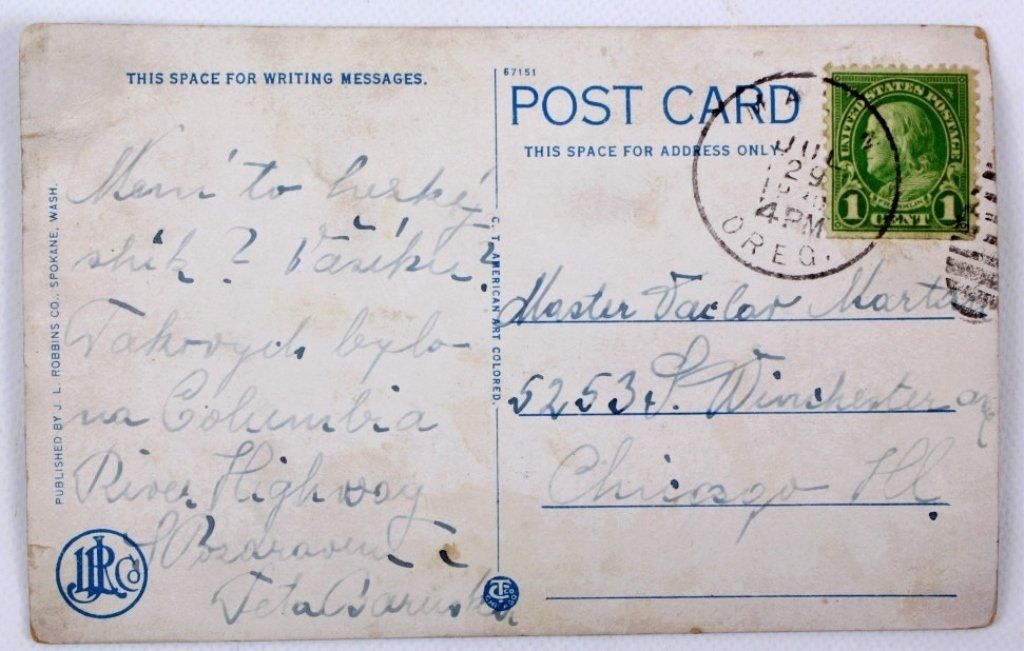 THIS SPACE FOR WRITING MESSAGES.
67151
POST CARD
THIS SPACE FOR ADDRESS ONLY.
JUL
29
4 PM
OREG.
UNITED STATES POSTAGE
FRANKLIN
1 CENT 1
Není to hezký
? Vašíku?
Takových bylo
na Columbia
River Highway
S Pozdravem
Teta Baruška
Master Vaclav Martan
5253 S. Winchester ave
Chicago Ill.
PUBLISHED BY J. L. ROBBINS CO., SPOKANE, WASH.
C. T. AMERICAN ART COLORED.
JLR Co